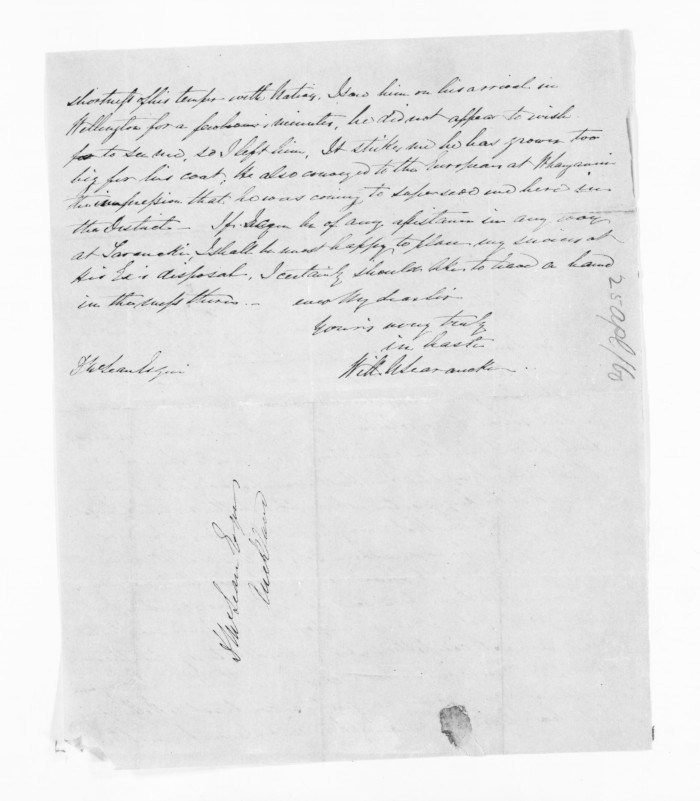 shortness of his temper with Natives. I saw him on his arrival in
Wellington for a few minutes, he did not appear to wish
to see me, so I left him, It strikes me he has grown too
big for his coat, He also conveyed to the Europeans at Wanganui
the impression that he was coming to supersede me here in
the District — If I can be of any assistance in any way
at Taranaki, I shall be most happy to place my services at
His Ex's disposal, I certainly should like to have a hand
in the, up there. — ever My dear Sir
Yours very truly
in haste
Will N Searancke
D McLean Esquire
25 Apl /60
D McLean Esqre
Auckland